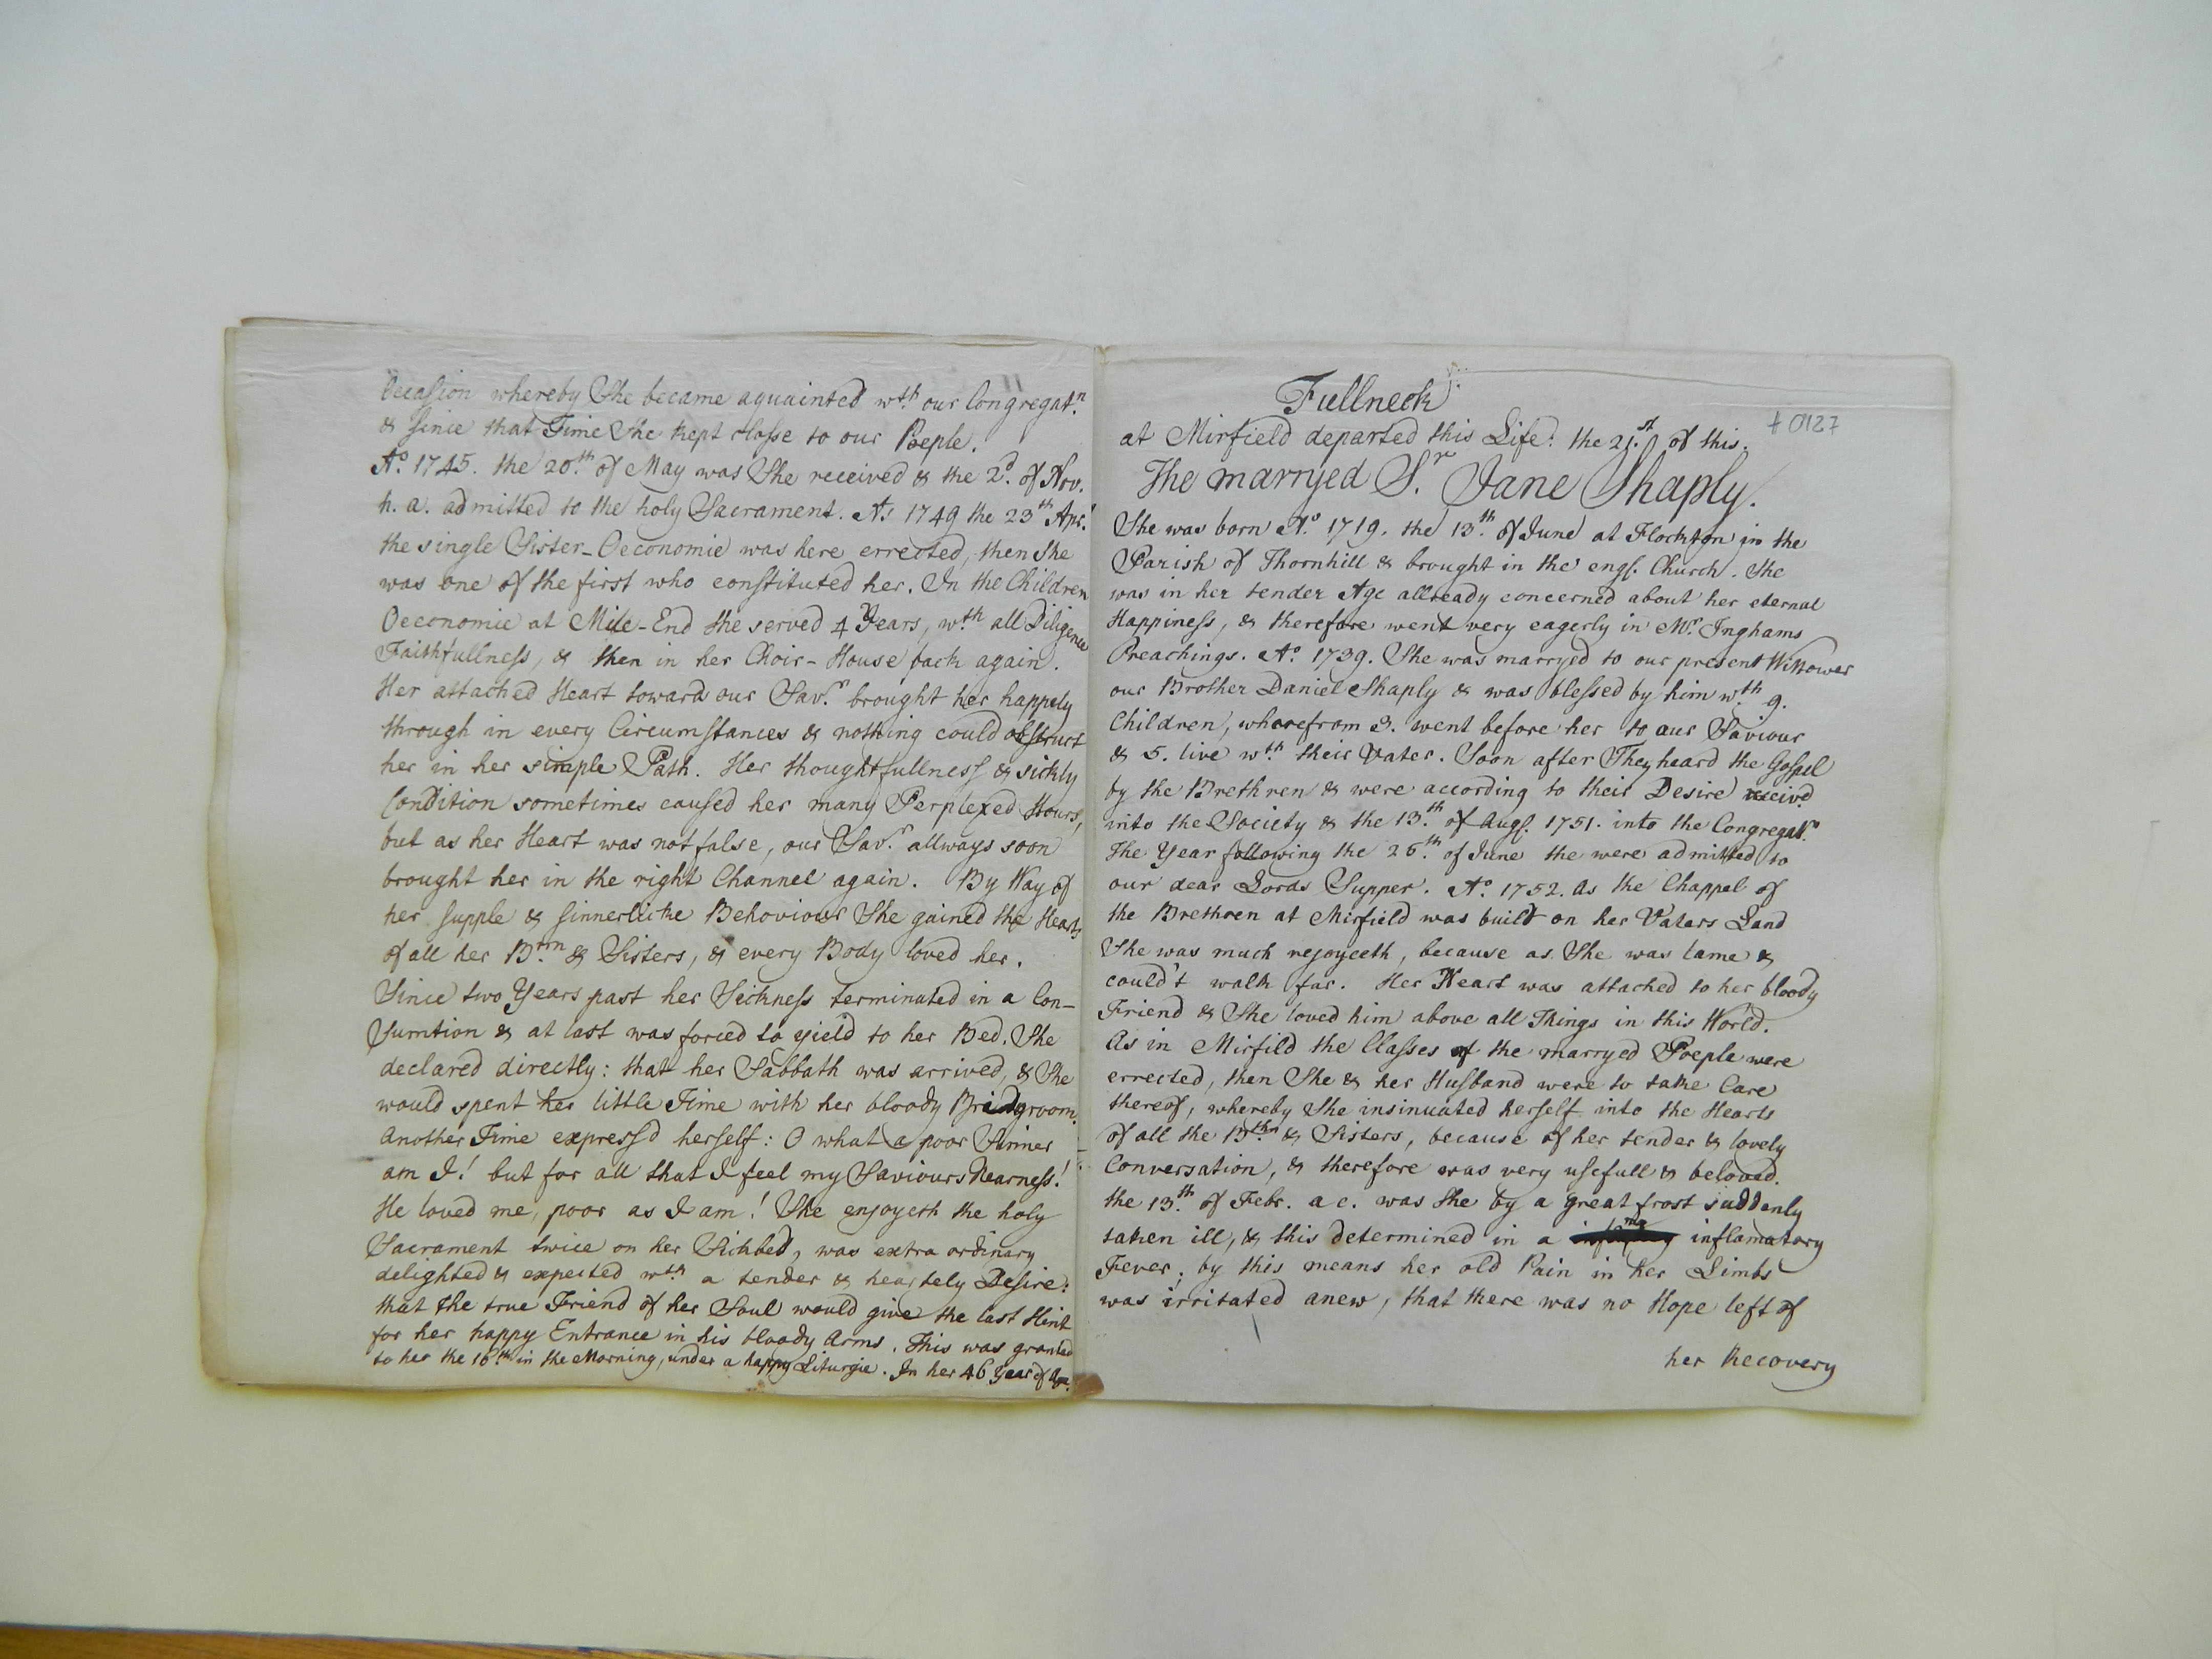 Occasion whereby She became aquainted wth. our Congregatn.
& sinie that Time She kept closse to our Poeple.
Ao. 1745. the 20th. of May was She received & the 2d. of Nov.
h. a. admitted to the holy Sacrament. Ao. 1749 the 23th Apr.
the single Sister-Oeconomie was here errected, then She
was one of the first who constituted her. In the Children
Oeconomie at Mile-End She served 4 Years, wth. all Diligence
Faithfullness, & then in her Choir-House back again.
Her attached Heart toward our Savr. brought her happely
through in every Circumstances & nothing could obstruct
her in her simple Path. Her thoughtfullness & sickly
Condition sometimes caused her many Perplexed Hours,
but as her Heart was not false, our Savr. allways soon
brought her in the right Channel again. By Way of
her supple & sinnerlike Behoviour She gained the Hearts
of all her Brn. & Sisters, & every Body loved her.
Since two Years past her Sickness terminated in a Con-
sumtion & at last was forced to yield to her Bed. She
declared directly: that her Sabbath was arrived, & She
would spent her little Time with her bloody Bridgroom.
Another Time express'd herself: O what a poor Sinner
am I! but for all that I feel my Saviours Nearness!
He loved me, poor as I am! She enjoyeth the holy
Sacrament twice on her Sickbed, was extra ordinary
delighted & expected wth. a tender & heartely Desire:
that the true Friend of her Soul would give the last Hint
for her happy Entrance in his bloody Arms. This was granted
to her the 16th. in the Morning, under a happy Liturgie. In her 46 Year of Age.
11
Fullneck
# 0127
at Mirfield departed this Life: the 21st. of this.
The marryed Sr. Jane Shaply.
She was born Ao. 1719. the 13th. of June at Flockton in the
Parish of Thornhill & brought in the engl. Church. She
was in her tender Age allready concerned about her eternal
Happiness, & therefore went very eagerly in Mr. Inghams
Preachings. Ao. 1739. She was marryed to our present Wittower
our Brother Daniel Shaply & was blessed by him wth. 9.
Children, wherefrom 3. went before her to our Saviour
& 5. live wth. their Vater. Soon after They heard the Gospel
by the Brethren & were according to their Desire received
into the Society & the 13th. of Augs. 1751. into the Congregatn.
The Year following the 26th. of June the were admitted to
our dear Lords Supper. Ao. 1752. As the Chappel of
the Brethren at Mirfield was built on her Vaters Land
She was much rejoyceth, because as She was lame &
could't walk far. Her Heart was attached to her bloody
Friend & She loved him above all Things in this World.
As in Mirfild the Classes of the marryed Poeple were
errected, then She & her Husband were to take Care
thereof, whereby She insinuated herself into the Hearts
of all the Bthn & Sisters, because of her tender & lovely
Conversation, & therefore was very usefull & beloved.
the 13th. of Febr. a c. was She by a great frost suddenly
taken ill, & this determined in a inflamatory
Fever, by this means her old Pain in her Limbs
was irritated anew, that there was no Hope left of
her Recovery